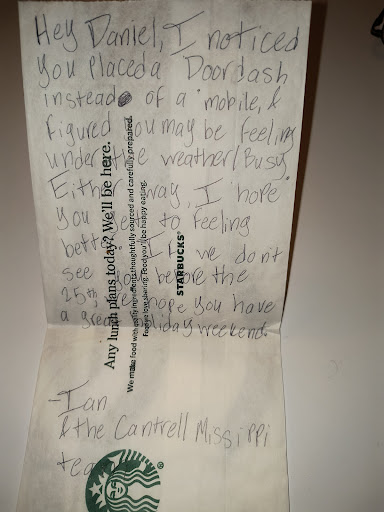 Hey Daniel, I noticed
you placed a Doordash
instead of a mobile, &
figured you may be feeling
under the weather/Busy.
Either way, I hope
you get to feeling
better. If we don't
see you before the
25th, we hope you have
a great holiday weekend.
-Ian
& the Cantrell Missippi
team
Any lunch plans today? We'll be here.
We make food with quality ingredients thoughtfully sourced and carefully prepared.
Food you love sharing. Food you'll be happy eating.
STARBUCKS®